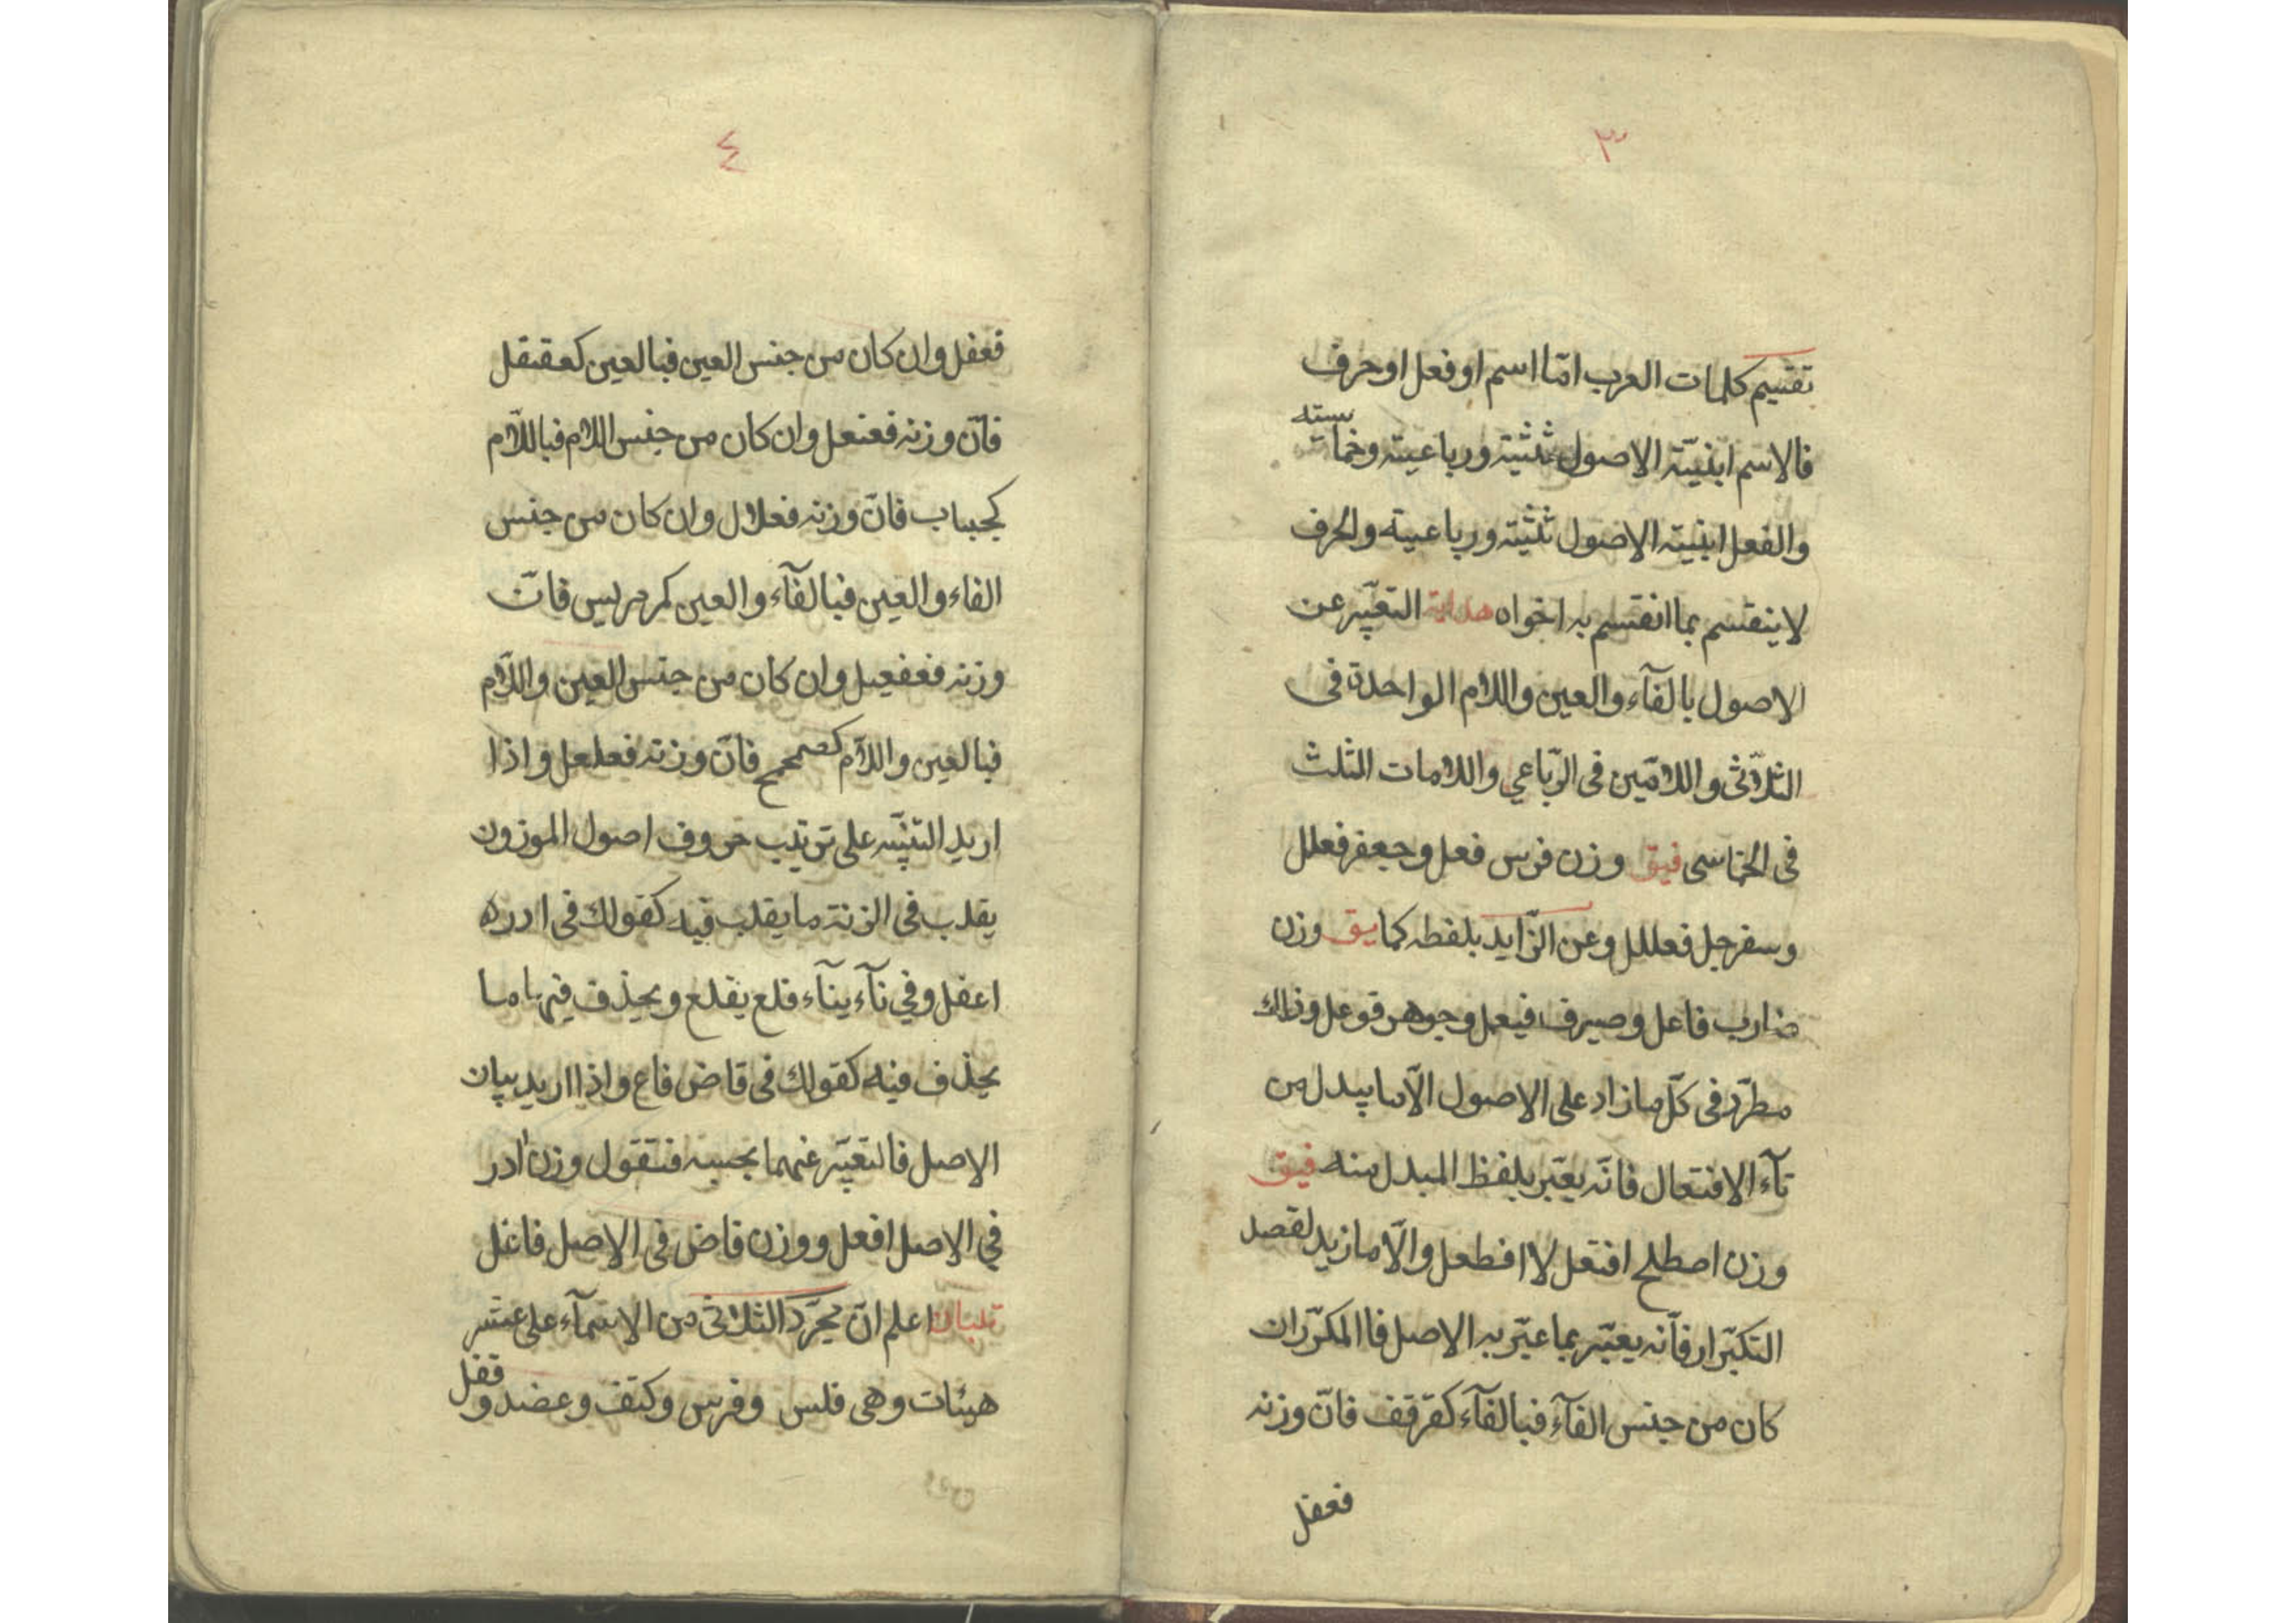 ٣
تقسيم كلمات العرب امّا اسم او فعل او حرف
فالاسم ابنيته الاصول ثلثية ورباعيته وخماسيته
والفعل ابنيته الاصول ثلثية ورباعيته والحرف
لا ينقسم بما انقسم به اخواه هداية التعبير عن
الاصول بالفآء والعين واللام الواحدة فى
الثلاثى واللامين فى الرباعي واللامات الثلث
فى الخماسى فيق وزن فرس فعل وجعفر فعلل
وسفرجل فعللل وعن الزّايد بلفظه كما يق وزن
ضارب فاعل وصيرف فيعل وجوهر فوعل وذلك
مطرّد فى كلّ ما زاد على الاصول الّا ما يبدل من
تآء الافتعال فانّه يعبّر بلفظ المبدل منه فيق
وزن اصطلح افتعل لا افطعل والّا ما زيد لقصد
التكرار فأنه يعبّر بما عبّر به الاصل فا المكرّران
كان من جنس الفآء فبالفآء كقرقف فانّ وزنه
فعفل
٤
فعفل وان كان من جنس العين فبالعين كعقنقل
فانّ وزنه فعنعل وان كان من جنس اللام فباللّام
كجبباب فانّ وزنه فعلال وان كان من جنس
الفاء والعين فبالفآء والعين كمرمريس فانّ
وزنه فعفعيل وان كان من جنس العين واللّام
فبالعين واللّام كصمحمح فانّ وزنه فعلعل واذا
اريد التنبيه على ترتيب حروف اصول الموزون
يقلب فى الزنة ما يقلب فيه كقولك فى ادره
اعفل وفي نآء ينآء فلع يفلع ويحذف فيها ما
يحذف فيه كقولك فى قاض فاع واذا اريد بيان
الاصل فالتعبير عنهما بحسبه فتقول وزن ادر
في الاصل افعل ووزن قاض فى الاصل فاعل
تبيان اعلم انّ مجرّد الثلاثى من الاسمآء على عشر
هيئات وهى فلس وفرس وكتف وعضد وقفل